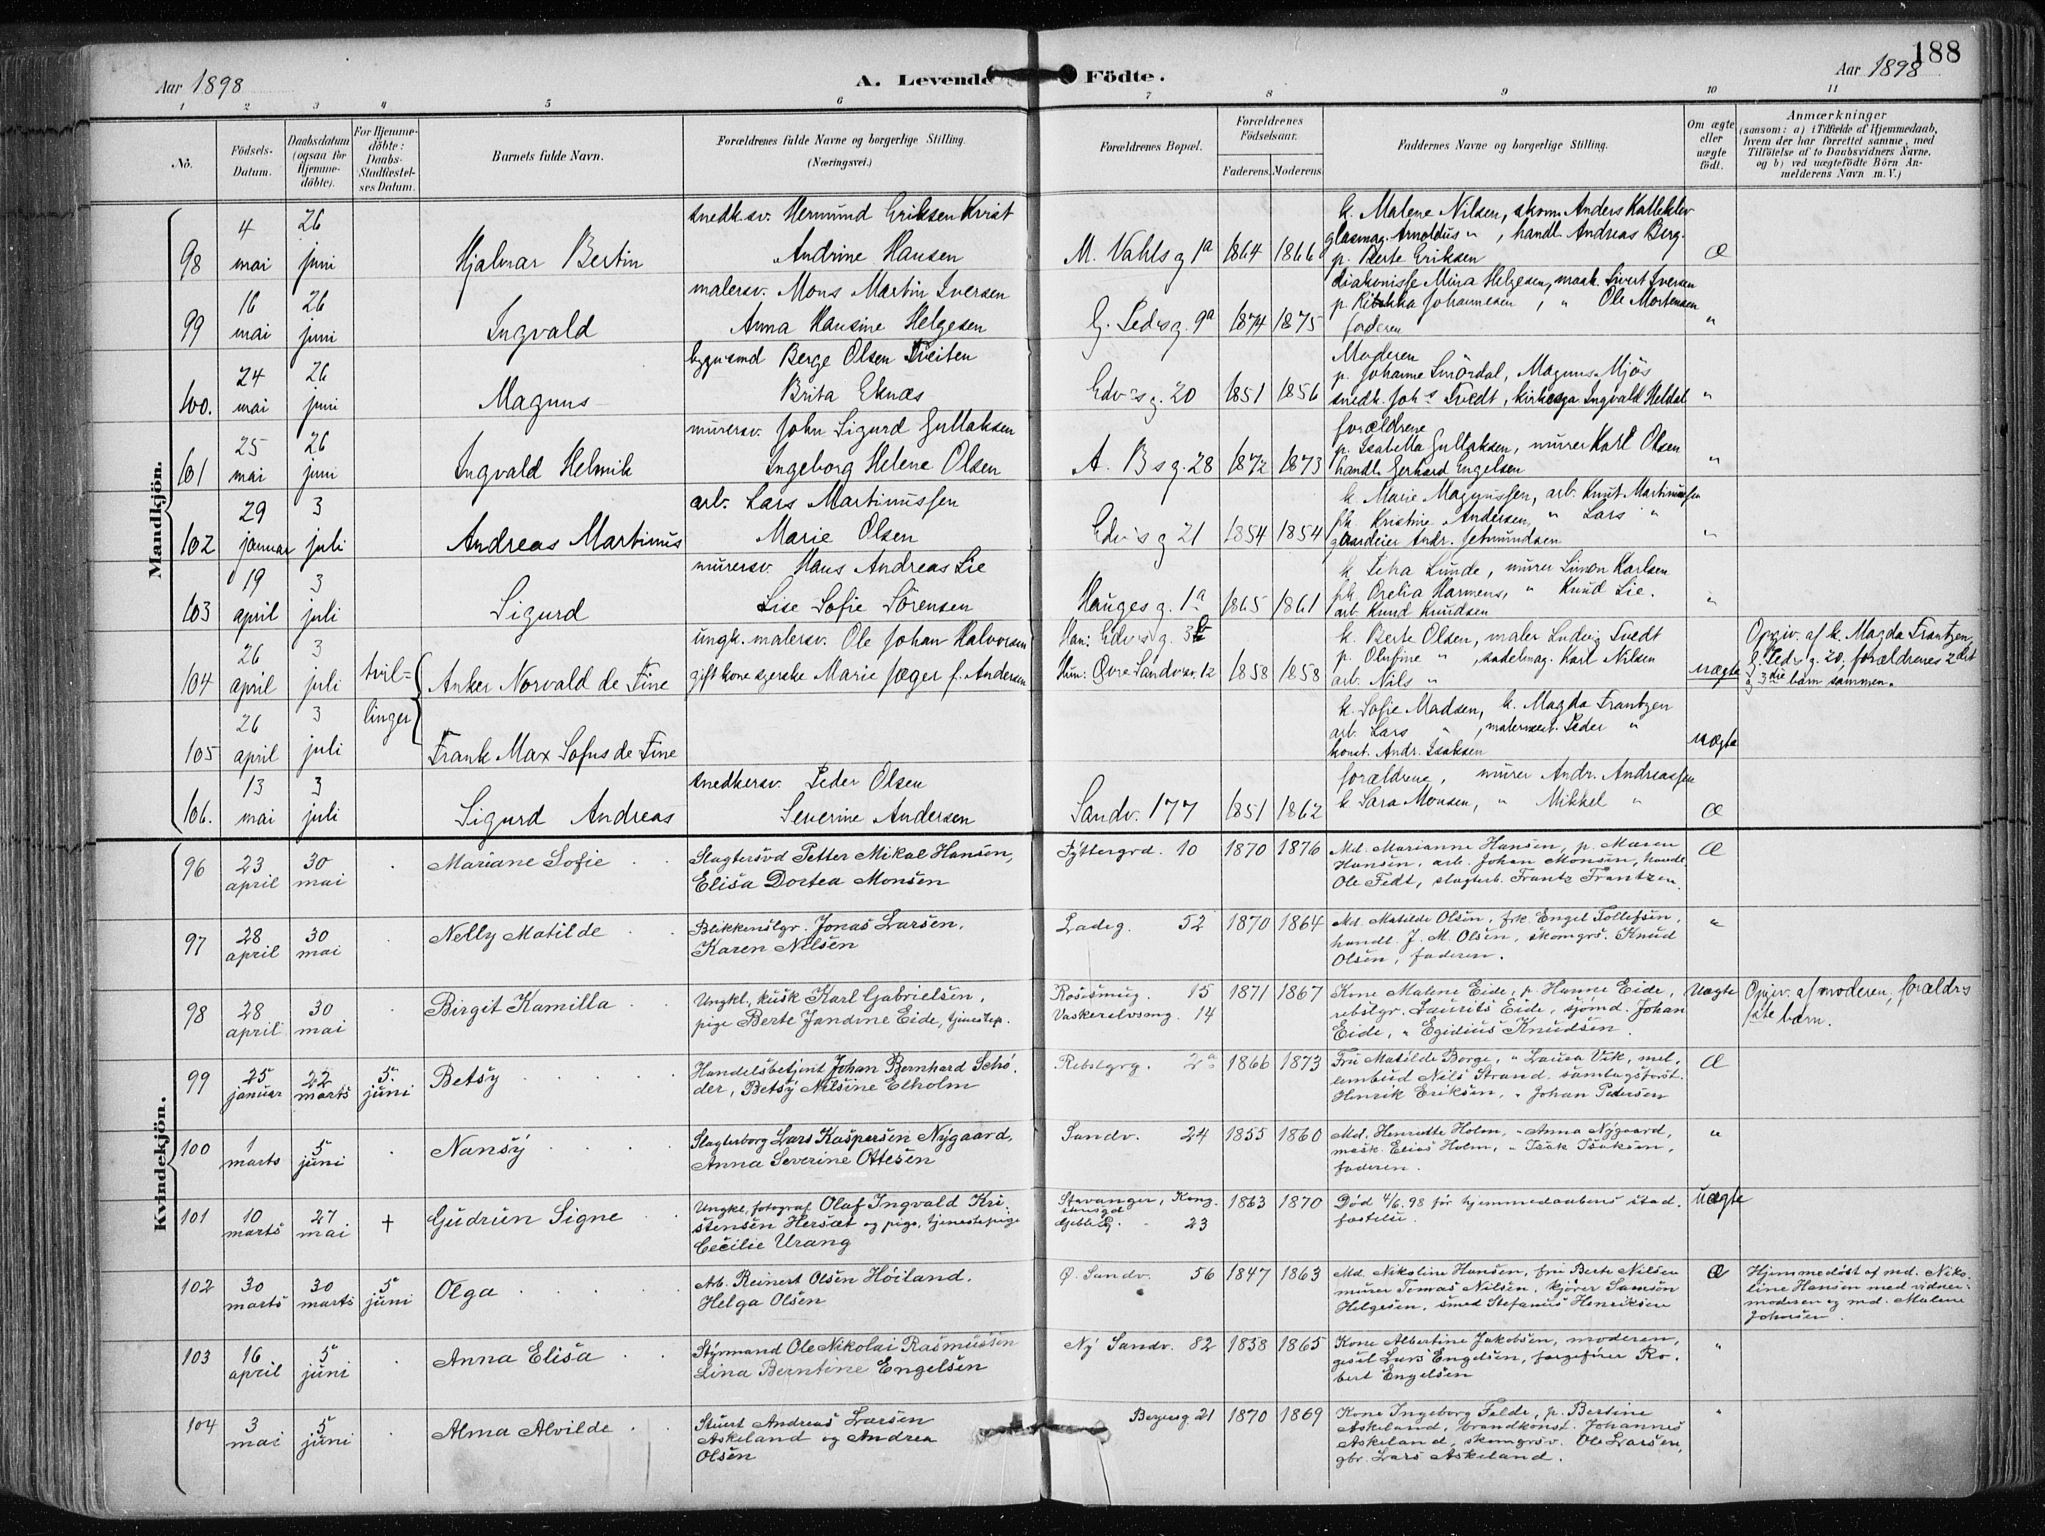 188
Aar 1898
A. Levende Fødte.
Aar 1898
1 2 3 4 5 6 7 8 9 10 11
No.
Fødsels-Datum.
Daabsdatum (ogsaa for Hjemmedøbte).
For Hjemmedøbte: Daabs-Stadfæstelses Datum.
Barnets fulde Navn.
Forældrenes fulde Navne og borgerlige Stilling. (Næringsvei.)
Forældrenes Bopæl.
Forældrenes Fødselsaar.
Faderens Moderens
Faddernes Navne og borgerlige Stilling.
Om ægte eller uægte født.
Anmærkninger
(saasom: a) i Tilfælde af Hjemmedaab, hvem der har forrettet samme, med Tilføielse af to Daabsvidners Navne, og b) ved uægtefødte Børn Anmelderens Navn m. V.)
Mandkjön.
98 4 mai 26 juni Hjalmar Bertin
snedk.sv. Hermund Eriksen Kvist
Andrine Hansen
M. Vahls g 1a 1864 1866
k. Malene Nilsen, skom. Anders Kalleklev
glasmag. Arnoldus " , handl. Andreas Berg.
p. Berte Eriksen
Æ
99 16 mai 26 juni Ingvald
malersv. Mons Martin Iversen
Anna Hansine Helgesen
G. Peds g. 9a 1874 1875
diakonisse Mina Helgesen, mask. Sivert Iversen
p. Johannesen, " Ole Mortensen
faderen
"
100. 24 mai 26 juni Magnus
bygn.smd Berge Olsen Tveiten
Brita Eknæs
Edvs g. 20 1851 1856
Moderen
p. Johanne Smördal, Magnus Mjös
snedk. Johs Tvedt, Ingvald Heldal
"
101 25 mai 26 juni Ingvald Helmik
murersv. John Sigurd Gullaksen
Ingeborg Helene Olsen
A. B s g. 28 1872 1873
forældrene
p. Isabella Gullaksen, murer Karl Olsen
handl. Gerhard Engelsen
"
102 29 januar 3 juli Andreas Martinus
arb. Lars Martinussen
Marie Olsen
Edvs g 21 1854 1854
k. Marie Magnussen, arb. Knut Martinussen
pk. Kristine Andersen, " Lars "
gaardeier Andr. Jetmundsen
"
103 19 april 3 juli Sigurd
murersv. Hans Andreas Lie
Lise Sofie Sörensen
Hauges g. 1a 1865 1861
k. Lunde, murer Simon Karlsen
pk. Orelia Harmens, " Knud Lie.
arb. Knud Knudsen
"
104 26 april 3 juli tvil- Anker Norvald de Fine
ungk. malersv. Ole Johan Halvorsen
gift kone syerske Marie Jæger f. Andersen
Han: Edvs g. 3
Hun: Øvre Sandv.sv. 12 1858 1858
k. Berte Olsen, maler Ludvig Tvedt
p. Olufine " , sadelmag. Karl Nilsen
arb. Nils "
uægte
Opgiv. af k. Magda Frantzen,
G. Peds g. 20, forældrenes 2det
og 3die barn sammen.
105 26 april 3 juli linger Frank Max Sofus de Fine
k. Sofie Madsen, k. Magda Frantzen
arb. Lars " , malermest. Peder "
konst. Andr. Isaksen
uægte
106. 13 mai 3 juli Sigurd Andreas
snedkersv. Peder Olsen
Severine Andersen
Sandv. 177 1851 1862
forældrene, murer Andr. Andreassen
k. Sara Monsen, " Mikkel "
Æ
Kvindekjön.
96 23 april 30 mai Mariane Sofie
Slagtersvd Petter Mikal Hansen,
Elisa Dortea Monsen
Tyttergrd. 10 1870 1876
Md. Marianne Hansen, p. Maren
Hansen, arb. Johan Monsen, handl.
Ole Fedt, slagterb. Frantz Frantzen.
Æ
97 28 april 30 mai Nelly Matilde
Blikkenslgr. Jonas Larsen,
Karen Nilsen
Ladeg. 52 1870 1864
Md. Matilde Olsen, frk. Engel Tollefsen,
handl. J. M. Olsen, skomgrs. Knud
Olsen, faderen.
"
98 28 april 30 mai Birgit Kamilla
Ungkl., kusk Karl Gabrielsen,
pige Berte Jandine Eide, tjenestep.
Rosesmug. 15
Vaskerelvsmg. 14 1871 1867
Kone Malene Eide, p. Hanne Eide,
rebslgr. Laurits Eide, sjömd. Johan
Eide, " Egidius Knudsen.
Uægte
Opgiv. af moderen, forældrs
1ste barn.
99 25 januar 22 marts 5. juni Betsy
Handelsbetjent Johan Bernhard Schrø-
der, Betsy Nilsine Elholm
Rebslgrg. 2a 1866 1873
Fru Matilde Borge, " Laura Vik, mel-
lembud Nils Strand, samlagsforst.
Henrik Eriksen, " Johan Pedersen
Æ
100 1 marts 5 juni Nansy
Slagterborg Lars Kaspersen Nygaard,
Anna Severine Ottesen
Sandv. 24 1855 1860
Md. Henriette Holm, " Anna Nygaard,
mask. Elias Holm, " Isak Isaksen,
faderen.
"
101 10 marts 27 mai + Gudrun Signe
Ungkl., fotograf Olaf Ingvald Kri-
stensen Hersæt og pige, tjenestepige
Cecilie Urang
Stavanger, Kong-
Gjeblg. 23 1863 1870
Död 4/6. 98 för hjemmedaabens stad-
fæstelse.
Uægte
102 30 marts 30 marts 5 juni Olga
Arb. Reinert Olsen Höiland,
Helga Olsen
Ø. Sandv. 56 1847 1863
Md. Nikoline Hansen, fru Berte Nilsen
murer Tomas Nilsen, kjører Samson
Helgesen, smed Stefanus Henriksen
Æ
Hjemmedöbt af md. Niko-
line Hansen med vidner:
moderen og md. Malene
Johnsen.
103 16 april 5 juni Anna Elisa
Styrmand Ole Nikolai Rasmussen
Lina Berntine Engelsen
Ny Sandv. 82 1858 1865
Kone Albertine Jakobsen, moderen,
gesel Lars Engelsen, fargefører Ro-
bert Engelsen
"
104 3 mai 5 juni Alma Alvilde
Stuert Andreas Larsen
Askeland og Andrea
Olsen
Bergesg. 21 1870 1869
Kone Ingeborg Felde, p. Bertine
Askeland, brandkonst. Johannes
Askeland, skomgrsv. Ole Larsen,
gbr. Lars Askeland.
"